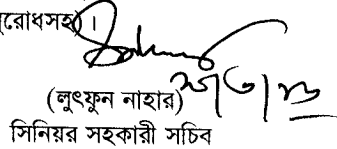 রোধসহ)।
(লুৎফুন নাহার)
সিনিয়র সহকারী সচিব